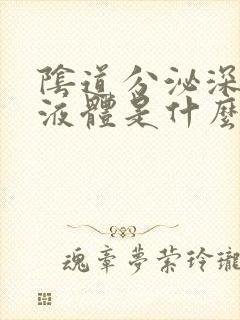 陰道分泌深
液體是什麼
魂牽夢縈玲瓏